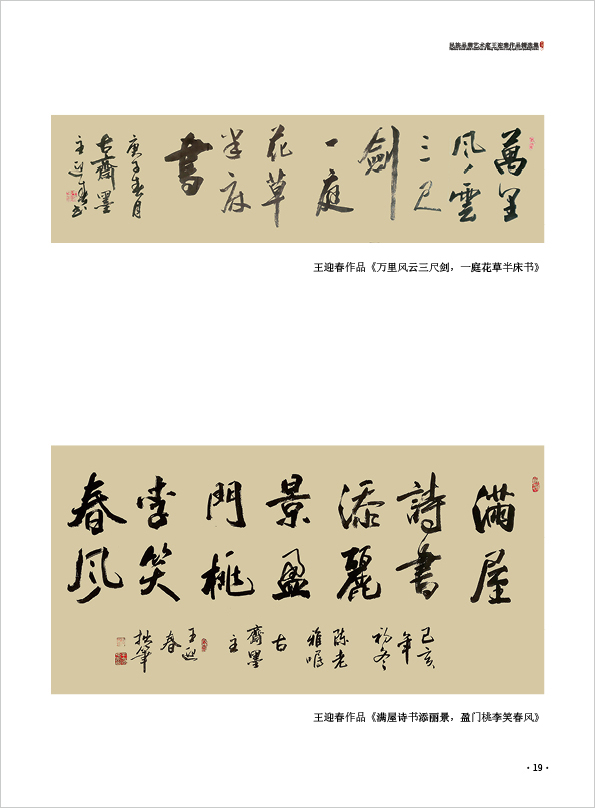 民族品牌艺术家王迎春作品精选集
萬里
風雲
三尺
劍
一庭
花草
半床
書
庚子春月
古齋墨
主迎春書
王迎春作品《万里风云三尺剑，一庭花草半床书》
滿屋
詩書
添麗
景盈
門桃
李笑
春风
己亥
年
初冬
陈老
雅嘱
古
齋墨
主
王迎
春
拙筆
王迎春作品《满屋诗书添丽景，盈门桃李笑春风》
·19·